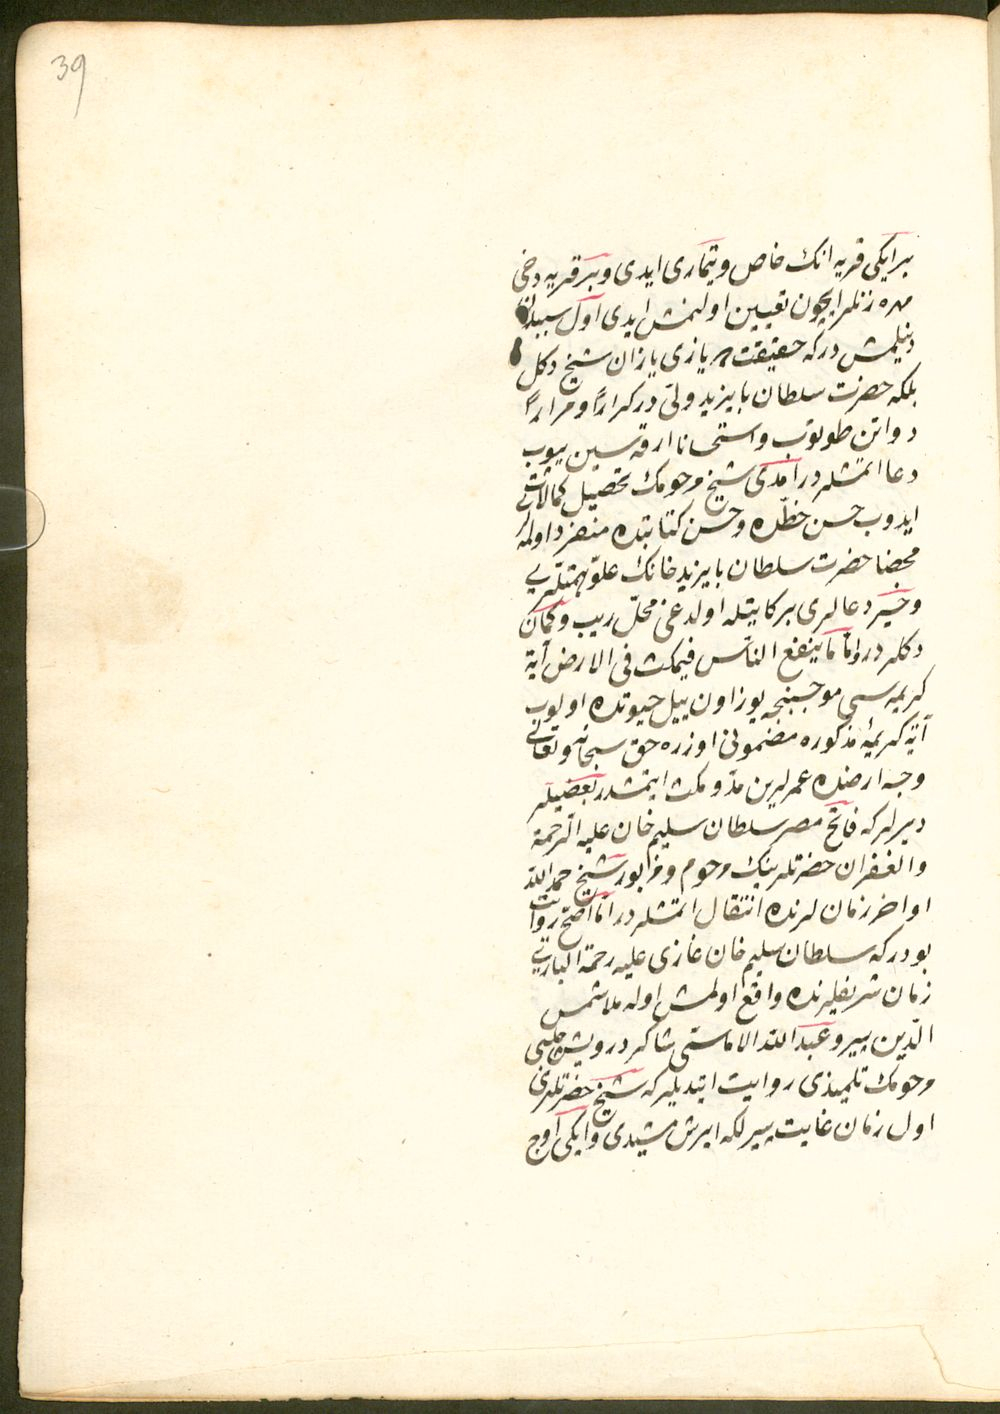 39
بر ایکی قریه انک خاص و تیماری ایدی و بر قریه دخی
مهره زنلر ایچون تعیین اولنمش ایدی اول سبیلدن
دینلمش در که حقیقت یازی یازان شیخ دکل
بلکه حضرت سلطان بایزید ولی در کراراً و مراراً
دواتن طوتوب و استحسانا ارقه سین سیوب
دعا ایتمشلر در آمدی شیخ مرحومک تحصیل کمالات
ایدوب حسن خطده و حسن کتابتده منفرد اولمه لری
محضا حضرت سلطان بایزید خانک علو همتلری
و خیر دعالری برکاتیله اولدغی محل ریب و کمان
دکلدر و اما ما ینفع الناس فیمکث فی الارض آیهٔ
کریمه سی موجبنجه یوز اون ییل حیوتده اولوب
آیهٔ کریمهٔ مذکوره مضمونی اوزره حق سبحانه و تعالی
وجه ارضده عمرلرین مد و مکث ایتمشدر بعضیلر
دیرلر که فاتح مصر سلطان سلیم خان علیه الرحمة
والغفران حضرتلرینک مرحوم و مزبور شیخ حمد الله
اواخر زمانلرنده انتقال ایتمشلر در اما اصح روایت
بودر که سلطان سلیم خان غازی علیه رحمة الباری
زمان شریفلرنده واقع اولمش اوله ملا شمس
الدین پیرو عبد الله الاماسی شاکرد درویش چلبی
مرحومک تلمیذی روایت ایتدیلر که شیخ حضرتلری
اول زمان غایت پیرلکه ایرشمشیدی و ایکی اوج